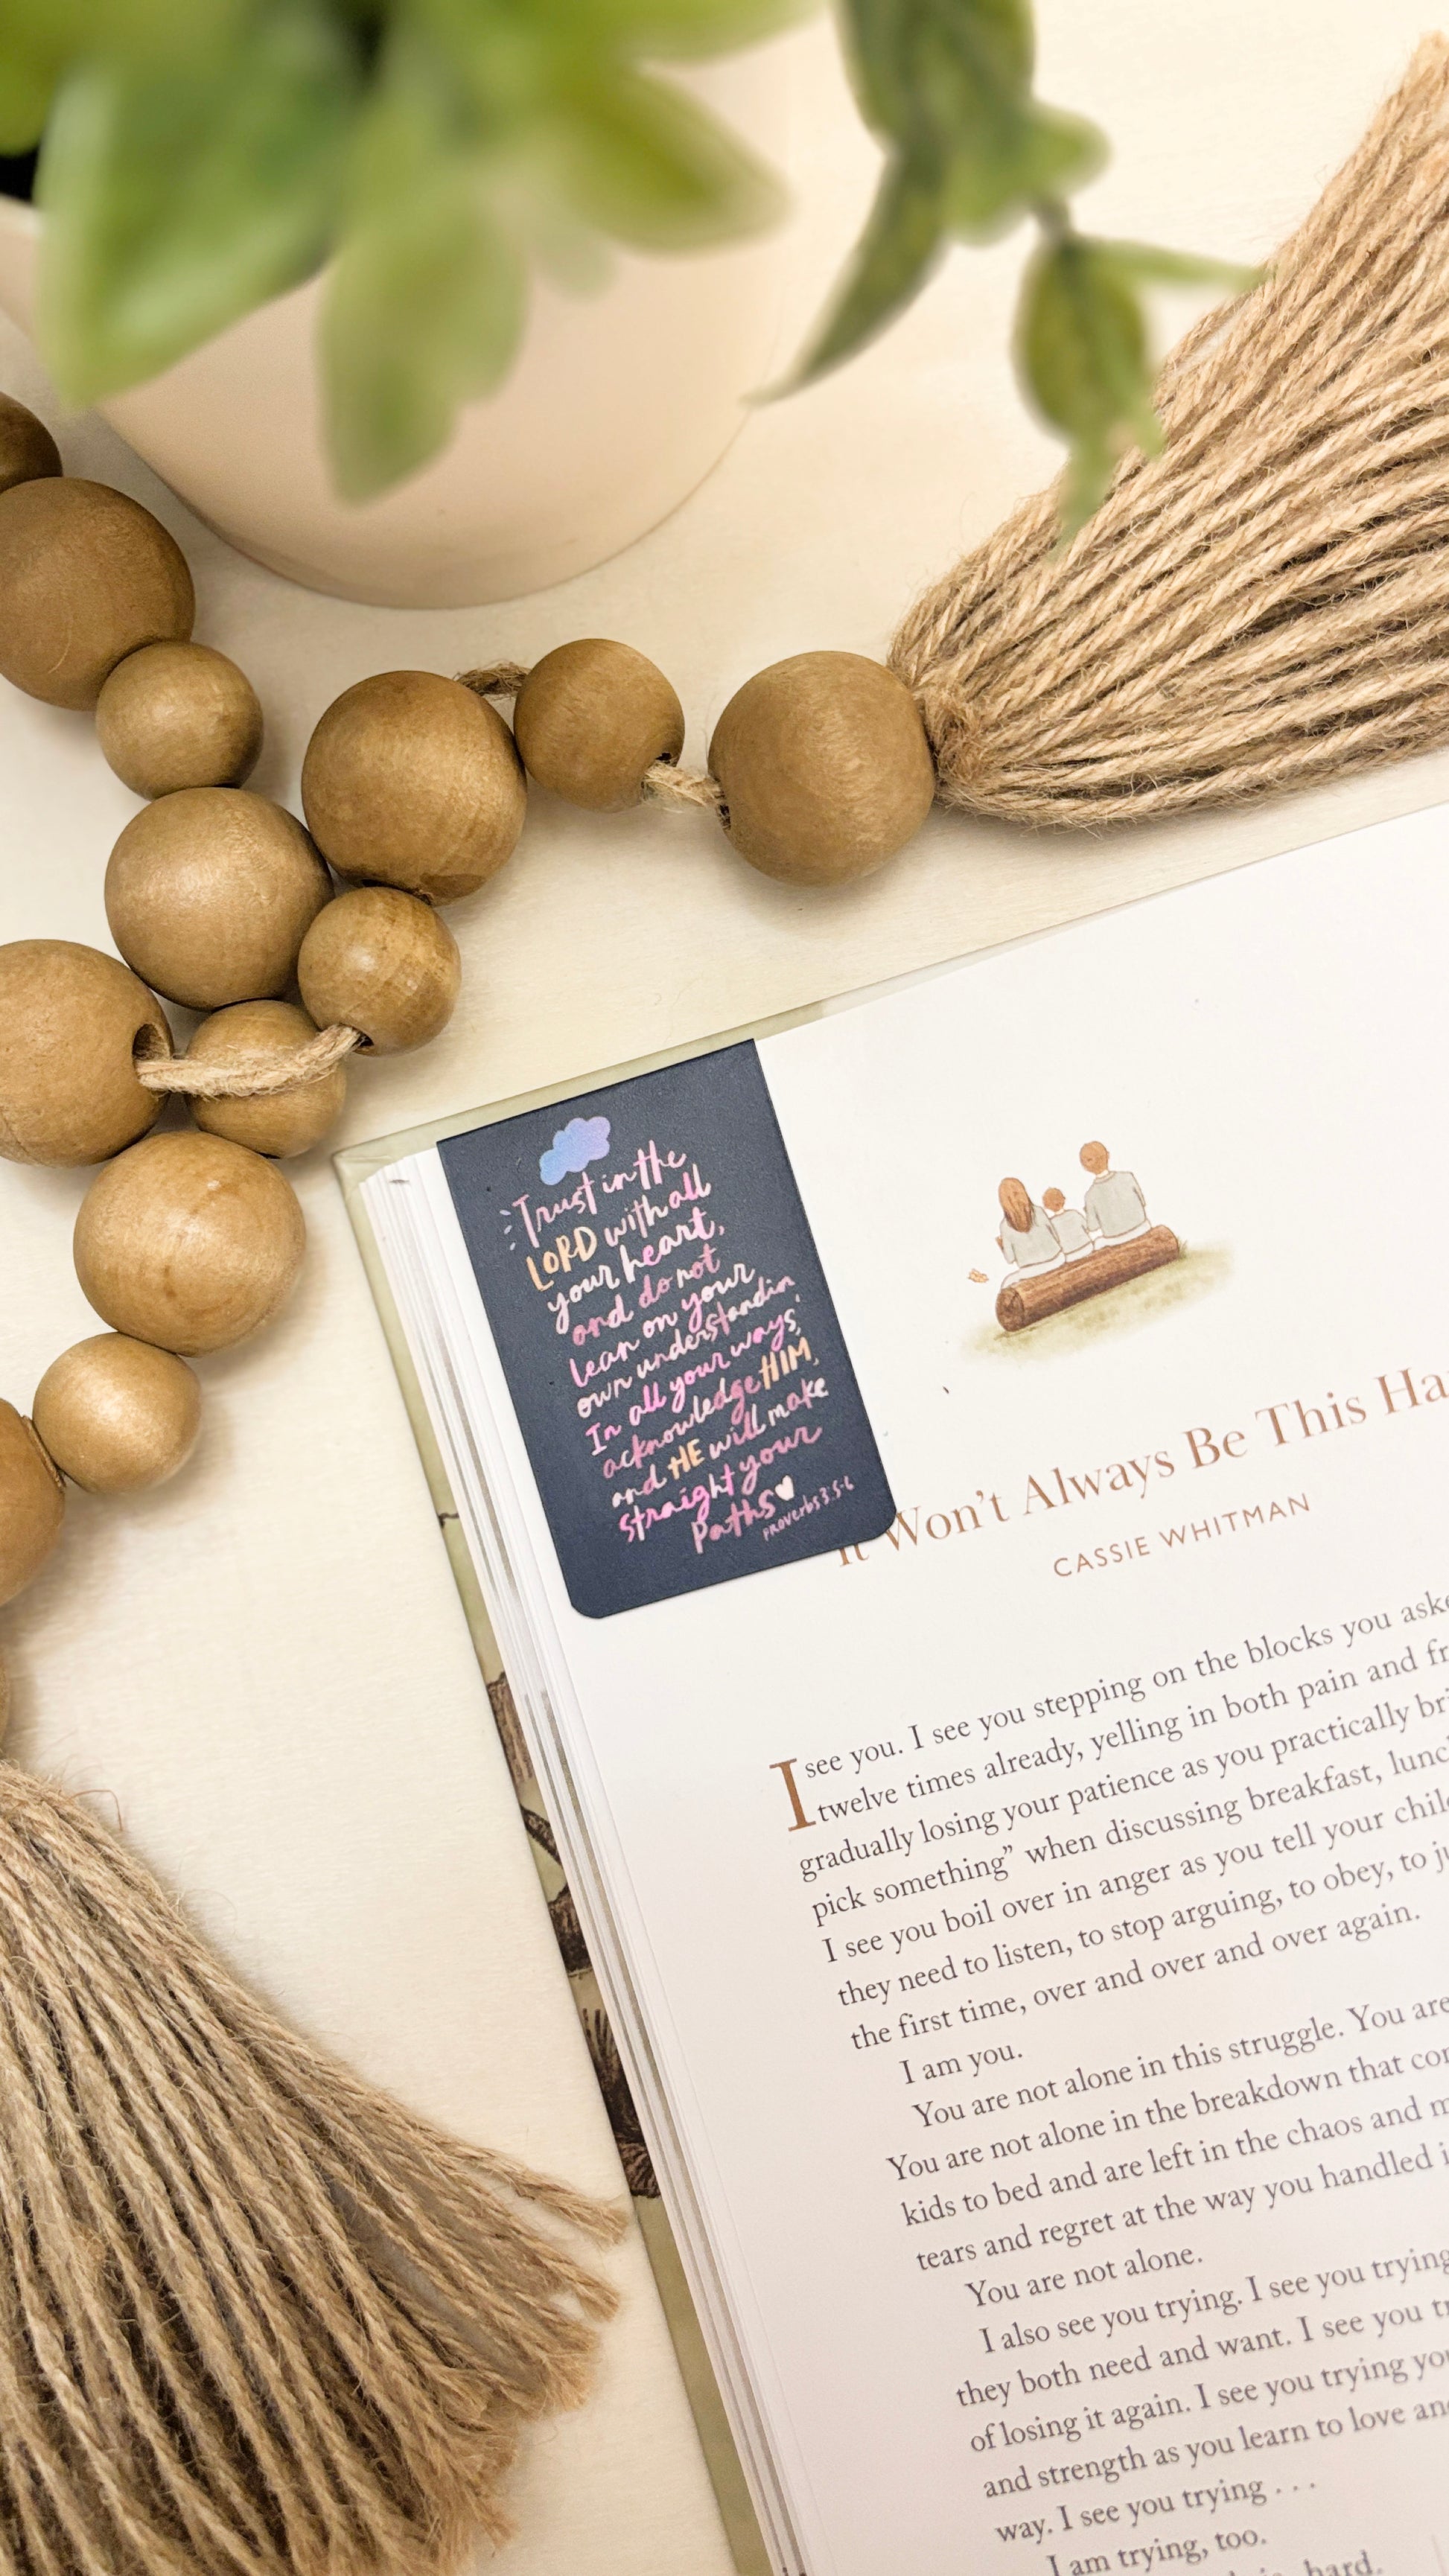 Trust in the
LORD with all
your heart,
and do not
lean on your
own understandin,
In all your ways,
acknowledge HIM,
and HE will make
straight your
paths
Proverbs 3:5-6
It Won't Always Be This Ha
CASSIE WHITMAN
I see you. I see you stepping on the blocks you aske
twelve times already, yelling in both pain and fr
gradually losing your patience as you practically bri
pick something” when discussing breakfast, lunc
I see you boil over in anger as you tell your chil
they need to listen, to stop arguing, to obey, to ju
the first time, over and over and over again.
I am you.
You are not alone in this struggle. You are
You are not alone in the breakdown that co
kids to bed and are left in the chaos and m
tears and regret at the way you handled i
You are not alone.
I also see you trying. I see you trying
they both need and want. I see you tr
of losing it again. I see you trying yo
and strength as you learn to love an
way. I see you trying . . .
I am trying, too.
hard.